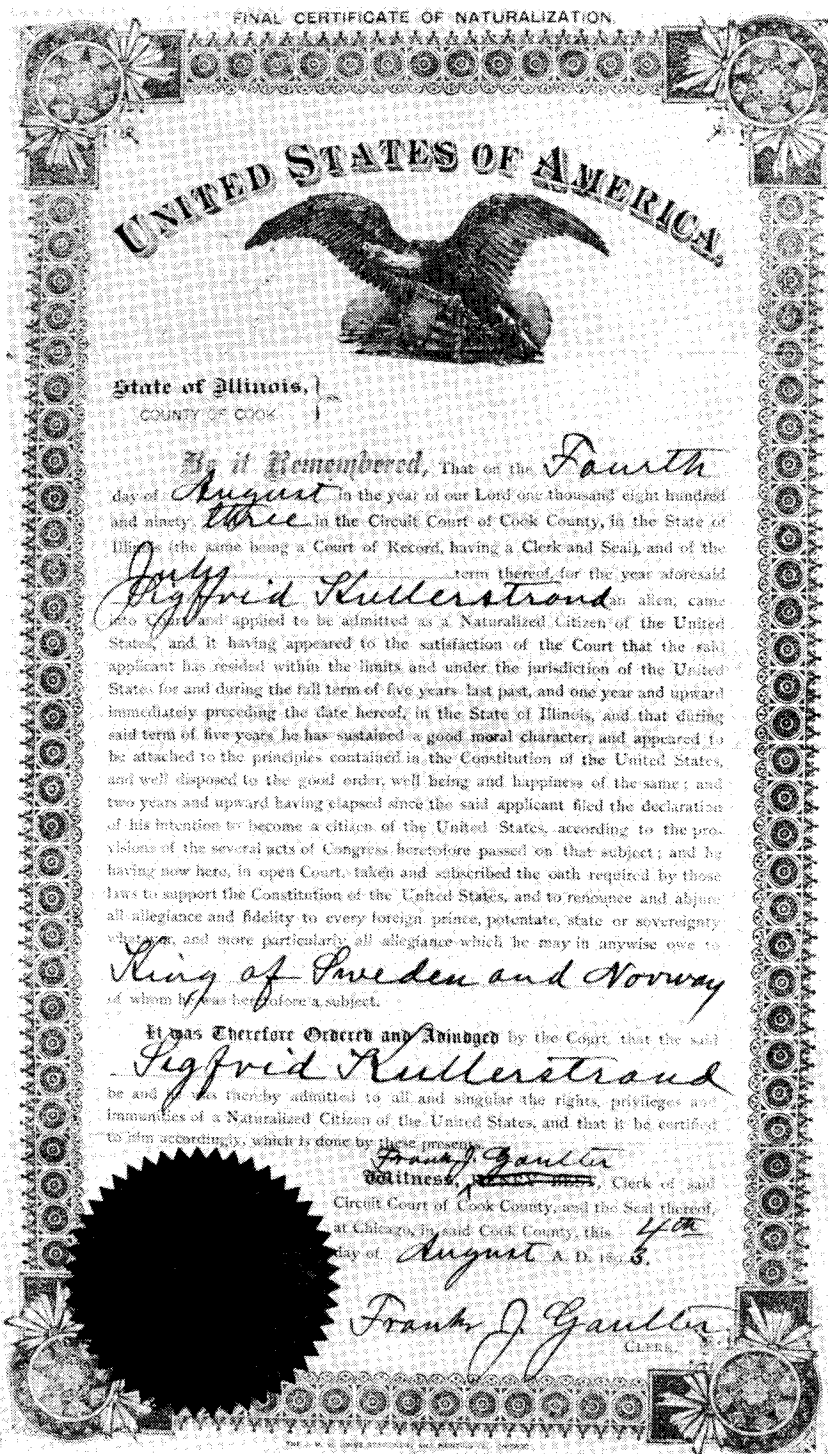 FINAL CERTIFICATE OF NATURALIZATION.
UNITED STATES OF AMERICA.
State of Illinois, } ss.
COUNTY OF COOK
Be it Remembered, That on the Fourth
day of August in the year of our Lord one thousand eight hundred
and ninety three in the Circuit Court of Cook County, in the State of
Illinois (the same being a Court of Record, having a Clerk and Seal), and of the
July term thereof, for the year aforesaid
Sigfrid Kullerstrand an alien, came
into Court and applied to be admitted as a Naturalized Citizen of the United
States, and it having appeared to the satisfaction of the Court that the said
applicant has resided within the limits and under the jurisdiction of the United
States for and during the full term of five years last past, and one year and upward
immediately preceding the date hereof, in the State of Illinois, and that during
said term of five years he has sustained a good moral character, and appeared to
be attached to the principles contained in the Constitution of the United States,
and well disposed to the good order, well being and happiness of the same; and
two years and upward having elapsed since the said applicant filed the declaration
of his intention to become a citizen of the United States, according to the pro-
visions of the several acts of Congress heretofore passed on that subject; and he
having now here, in open Court, taken and subscribed the oath required by those
laws to support the Constitution of the United States, and to renounce and abjure
all allegiance and fidelity to every foreign prince, potentate, state or sovereignty
whatever, and more particularly all allegiance which he may in anywise owe to
King of Sweden and Norway
of whom he was heretofore a subject.
It was Therefore Ordered and Adjudged by the Court, that the said
Sigfrid Kullerstrand
be and he was thereby admitted to all and singular the rights, privileges and
immunities of a Naturalized Citizen of the United States, and that it be certified
to him accordingly, which is done by these presents.
Frank J. Gaulter
Witness, HENRY BEST, Clerk of said
Circuit Court of Cook County, and the Seal thereof,
at Chicago, in said Cook County, this 4th
day of August A. D. 1893.
Frank J. Gaulter
CLERK.